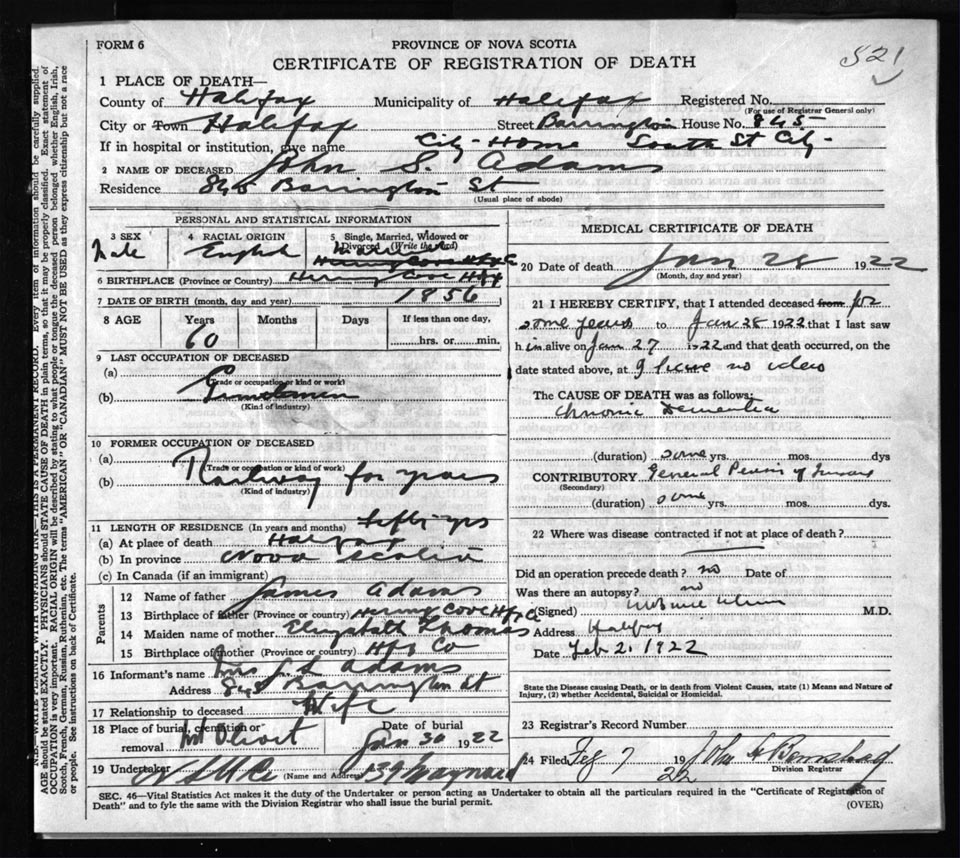 FORM 6
PROVINCE OF NOVA SCOTIA
CERTIFICATE OF REGISTRATION OF DEATH
821
1 PLACE OF DEATH—
County of Halifax Municipality of Halifax Registered No.
(For use of Registrar General only)
City or Town Halifax Street Barrington House No. 845
If in hospital or institution, give name City Home South St City
2 NAME OF DECEASED John S. Adams
Residence 845 Barrington St
(Usual place of abode)
PERSONAL AND STATISTICAL INFORMATION
3 SEX
Male
4 RACIAL ORIGIN
English
5 Single, Married, Widowed or
Divorced (Write the word)
Herring Cove Hfx Co
6 BIRTHPLACE (Province or Country) Herring Cove Hfx
7 DATE OF BIRTH (month, day and year) 1856
8 AGE
Years
60
Months
Days
If less than one day,
hrs. or min.
9 LAST OCCUPATION OF DECEASED
(a)
(Trade or occupation or kind or work)
(b)
(Kind of industry)
10 FORMER OCCUPATION OF DECEASED
(a)
(Trade or occupation or kind of work)
(b) Railway for years
(Kind of industry)
11 LENGTH OF RESIDENCE (In years and months) fifty yrs
(a) At place of death Halifax
(b) In province Nova Scotia
(c) In Canada (if an immigrant)
Parents
12 Name of father James Adams
13 Birthplace of father (Province or country) Herring Cove Hfx Co
14 Maiden name of mother Elizabeth Thomas
15 Birthplace of mother (Province or country) Hfx Co
16 Informant's name Mrs J. S. Adams
Address 845 Barrington St
17 Relationship to deceased Wife
18 Place of burial, cremation or
removal Mt Olivet
Date of burial
Jan 30 1922
19 Undertaker
(Name and Address) 139 Maynard
MEDICAL CERTIFICATE OF DEATH
20 Date of death Jan 28 1922
(Month, day and year)
21 I HEREBY CERTIFY, that I attended deceased from for
some years to Jan 28 1922 that I last saw
him alive on Jan 27 1922 and that death occurred, on the
date stated above, at I have no idea
The CAUSE OF DEATH was as follows:
Chronic Dementia
(duration) some yrs. mos. dys
CONTRIBUTORY General Paresis of Insane
(Secondary)
(duration) some yrs. mos. dys.
22 Where was disease contracted if not at place of death?
Did an operation precede death? no Date of
Was there an autopsy? no
(Signed) M.D.
Address Halifax
Date Feb 2, 1922
State the Disease causing Death, or in death from Violent Causes, state (1) Means and Nature of
Injury, (2) whether Accidental, Suicidal or Homicidal.
23 Registrar's Record Number
24 Filed Feb 7 1922 John
Division Registrar
SEC. 46—Vital Statistics Act makes it the duty of the Undertaker or person acting as Undertaker to obtain all the particulars required in the "Certificate of Registration of
Death" and to fyle the same with the Division Registrar who shall issue the burial permit.
(OVER)
N.B.—WRITE PLAINLY WITH UNFADING INK—THIS IS A PERMANENT RECORD. Every item of information should be carefully supplied.
AGE should be stated EXACTLY. PHYSICIANS should STATE CAUSE OF DEATH in plain terms, so that it may be properly classified. Exact statement of
OCCUPATION is very important. RACIAL ORIGIN will be described by stating to what people or tongue the deceased person belonged whether English, Irish,
Scotch, French, German, Russian, Ruthenian, etc. The terms "AMERICAN" OR "CANADIAN" MUST NOT BE USED as they express citizenship but not a race
or people. See instructions on back of Certificate.